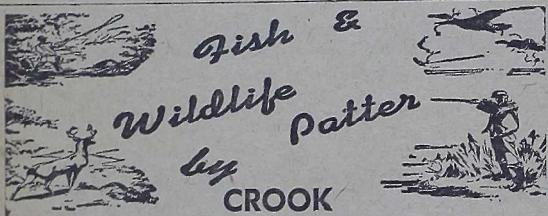 Fish &
Wildlife
Patter
by
CROOK